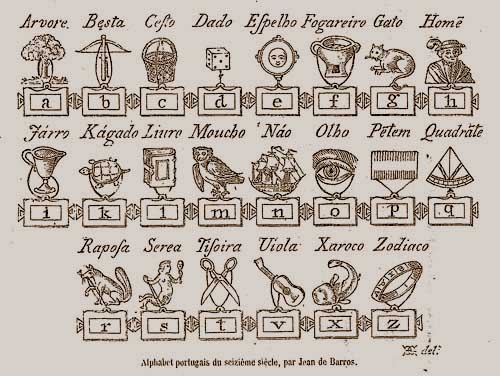 Arvore. Bęsta Ceſto Dado Eſpelho Fogareiro Gato Homẽ
a b c d e f g h
Járro Kágado Liuro Moucho Náo Olho Pẽtem Quadrãte
i k l m n o p q
Rapoſa Serea Tiſoira Uiola Xaroco Zodiaco
r s t v x z
delt
Alphabet portugais du seizième siècle, par Jean de Barros.